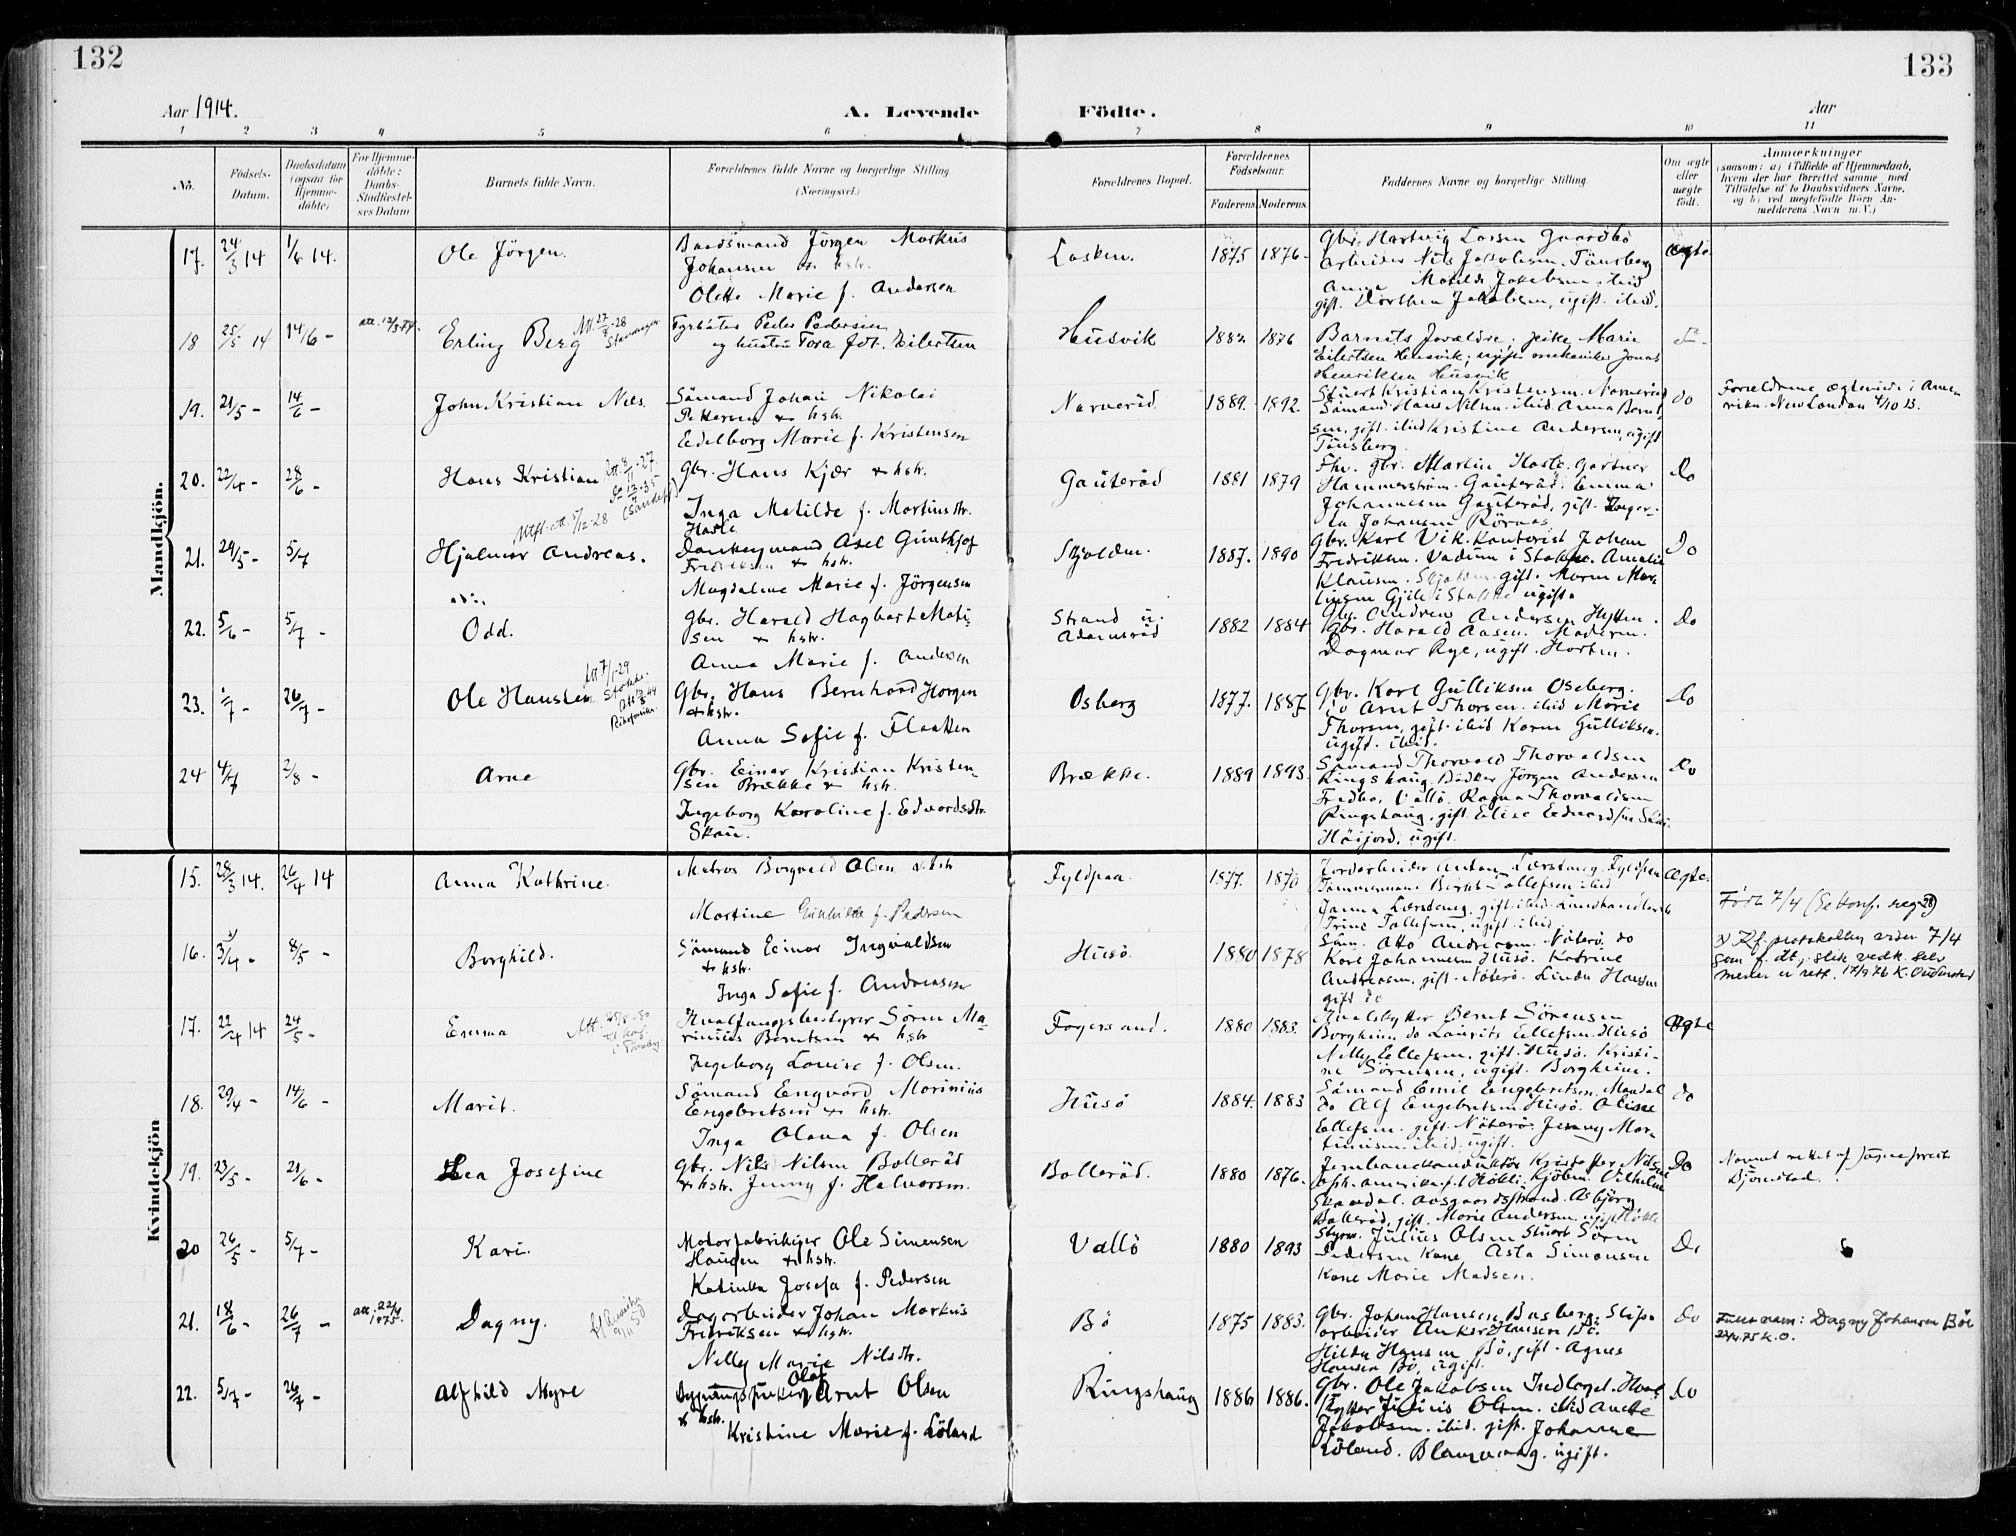 132
133
Aar 1914.
A. Levende
Födte.
Aar
1 2 3 4 5 6 7 8 9 10 11
No.
Födsels-
Datum.
Daabsdatum
(ogsaa for
Hjemme-
döbte)
For Hjemme-
döbte:
Daabs-
Stadfæstel-
ses Datum
Barnets fulde Navn.
Forældrenes fulde Navne og borgerlige Stilling
(Næringsvei.)
Forældrenes Bopæl.
Forældrenes
Födselsaar.
Faderens
Moderens.
Faddernes Navne og borgerlige Stilling.
Om ægte
eller
uægte
födt.
Anmærkninger
(saasom: a) i Tilfælde af Hjemmedaab,
hvem der har forrettet samme med
Tilföielse af to Daabsvidners Navne,
og b) ved uægtefödte Börn An-
melderens Navn m. V.)
Mandkjön.
17. 24/3 14 1/6 14.
Ole Jörgen.
Baadsmand Jörgen Markus
Johansen & hstr.
Olette Marie f. Andersen
1875 1876
Gbr. Hartvig Lassen
Arbeider Nils Jakobsen. Tönsberg
Anna Matilde Jakobsen, ibid
gift. Dorthea Jakobsen, ugift. ibid.
ægte.
18 25/5 14 14/6 –
Erling Berg
Att. 27/ -28
Stavanger
Fyrböter Peder Pedersen
og hustru Tora fdt. Eilertsen
Husvik
1882 1876
Barnets Forældre, pike Marie
Eilertsen Husvik, ugift, mekaniker Jonas
Henriksen Husvik
19. 21/5 – 14/6 –
John Kristian Nils.
Sömand Johan Nikolai
Pettersen & hstr.
Edelborg Marie f. Kristensen
Narveröd
1889. 1892.
Stuert Kristian Kristensen. Narveröd
Sömand Hans Nilsen. ibid. Anna Bernt-
sen, gift. ibid Kristine Andersen, ugift
Tönsberg
do
Forældrene ægteviet i Ame-
rika. New London 4/10 13.
20. 22/4 – 28/6 –
Hans Kristian
Att. 8/11 -27
Gbr. Hans Kjær & hstr.
Inga Matilde f. Martinsdtr.
Hasle
Gauteröd
1881 1879
Fhv. gbr. Martin Hasle. Gartner
Hammerström. Gauteröd. Emma
Johannesen Gauteröd, gift.
Johansen Rörnæs
Do
21. 29/5 – 5/7
Hjalmar Andreas.
Donkeymand Axel Günthjof
Fredriksen & hstr.
Magdalene Marie f. Jörgensen
1887. 1890
Gbr. Karl Vik. Kontorist Johan
Fredriksen. Vadum i Stokke. Amalie
Klausen. gift. Maren Mar-
tinsen Gjile i Stokke ugift.
Do
22. 5/6 – 5/7 –
Odd.
Gbr. Harald Hagbart Mati-
sen & hstr.
Anna Marie f. Andersen
Strand u.
Adamsröd
1882 1884
Gbr. Andreas Andersen Hytten.
Gbr. Harald Aasen. Moderen.
Dagmar Rye, ugift. Horten.
Do
23. 1/7 – 26/7 –
Ole Hansten
Att 7/1-29
Stokke.
Gbr. Hans Bernhard Horgen
& hstr.
Anna Sofie f. Flaatten
Osberg
1877. 1887
Gbr. Karl Gulliksen Oseberg.
do Arnt Thorsen. ibid Marie
Thorsen, gift. ibid Karen Gulliksen.
ugift. ibid.
Do
24 4/7 2/8 –
Arne
Gbr. Einar Kristian Kristen-
sen Brække & hstr.
Ingeborg Karoline f. Edvardsdtr.
Skau.
Brække.
1889 1893.
Sömand Thorvald Thorvaldsen
Ringshaug. Bödker Jörgen Andersen
Fredbo, Vallö. Ragna Thorvaldsen
Ringshaug, gift. Elise Edvardsen Skau.
Höijord. ugift.
Do
Kvindekjön
15. 28/3 14. 26/4 14
Anna Kathrine.
Matros Borgvald Olsen & hstr
Martine Gunhilde f. Pedersen
Fyldpaa
1877. 1870
Jordarbeider Anton Lærstang. Fyldpaa
Tömmermand Birkt Tollefsen ibid
Janna Lærstang, gift. ibid.
Trine Tollefsen, ugift. ibid
Ægte.
Född 7/4 (Se konf. reg.)
16. 3/4 – 8/5 –
Borghild.
Sömand Einar Ingvaldsen
& hstr.
Inga Sofie f. Andreasen
Husö
1880 1878
Söm. Otto Andreasen. Nöterö. do
Kare Johannesen Husö. Katrine
Andreasen, gift. Nöterö. Linda Hansen
gift do
x) Kf. protokollen viser 7/4
som f. dt, slik vedk. selv
mener er rett.
17. 22/4 14 24/5 –
Emma
Hvalfangstbestyrer Sören Ma-
rinius Berntsen & hstr
Ingeborg Louise f. Olsen.
Fagersand.
1880 1883.
Hvalskytter Bernt Sörensen
Borgheim do Laurits Ellefsen. Husö
Nelly Ellefsen. gift. Husö. Kristi-
ne Sörensen, ugift. Borgheim.
Ægte
18. 29/4 – 14/6 –
Marit.
Sömand Engvard Marinius
Engebretsen & hstr.
Inga Olava f. Olsen
Husö
1884. 1883
Sömand Emil Engebretsen, Mandal
do Alf Engebretsen Husö. Olise
Ellefsen. gift. Nöterö. Jenny Mar-
tinsen. ibid. ugift.
do
19. 23/5 – 21/6 –
Lea Josefine
Gbr. Nils Nilsen Bolleröd
& hstr. Jenny f. Halvorsen.
Bolleröd.
1880 1876.
Jernbanekonduktör Kristoffer Nilsen
Vilhelm
Skaadal. Aasgaardsstrand. Asbjörg
Bolleröd, gift. Marie Andersen. ugift
Do
Navnet rettet af sogneprest
Bjönstad.
20 26/5 – 5/7 –
Kari.
Motorfabrikeier Ole Simensen
Haugen & hstr.
Katinka Josefa f. Pedersen
Vallö
1880 1893
Styrm. Julius Olsen Stuert Sören
Pedersen Kone Asta Simonsen
Kone Marie Madsen.
Do
21. 18/6 – 26/7 –
att. 22/4
1975.
Dagny.
Dagarbeider Johan Markus
Fredriksen & hstr.
Nelly Marie Nilsdtr.
Bö
1875 1883.
Gbr. Johan Hansen, Basberg. Slips-
arbeider Anker Hansen Bö.
Hilda Hansen Bö, gift. Agnes
Hansen Bö, ugift.
Do
Fullt navn: Dagny Johansen Böe
22/4.75 K.O.
22. 5/7 – 26/7 –
Alfhild Myre
Bygningssnekker Olaf Arnt Olsen
& hstr.
Kristine Marie f. Löland
Ringshaug
1886 1886.
Gbr. Ole Jakobsen Indlaget. Hval-
skytter Julius Olsen. ibid Anette
Jakobsen. ibid. gift. Johanne
Löland. ugift.
do